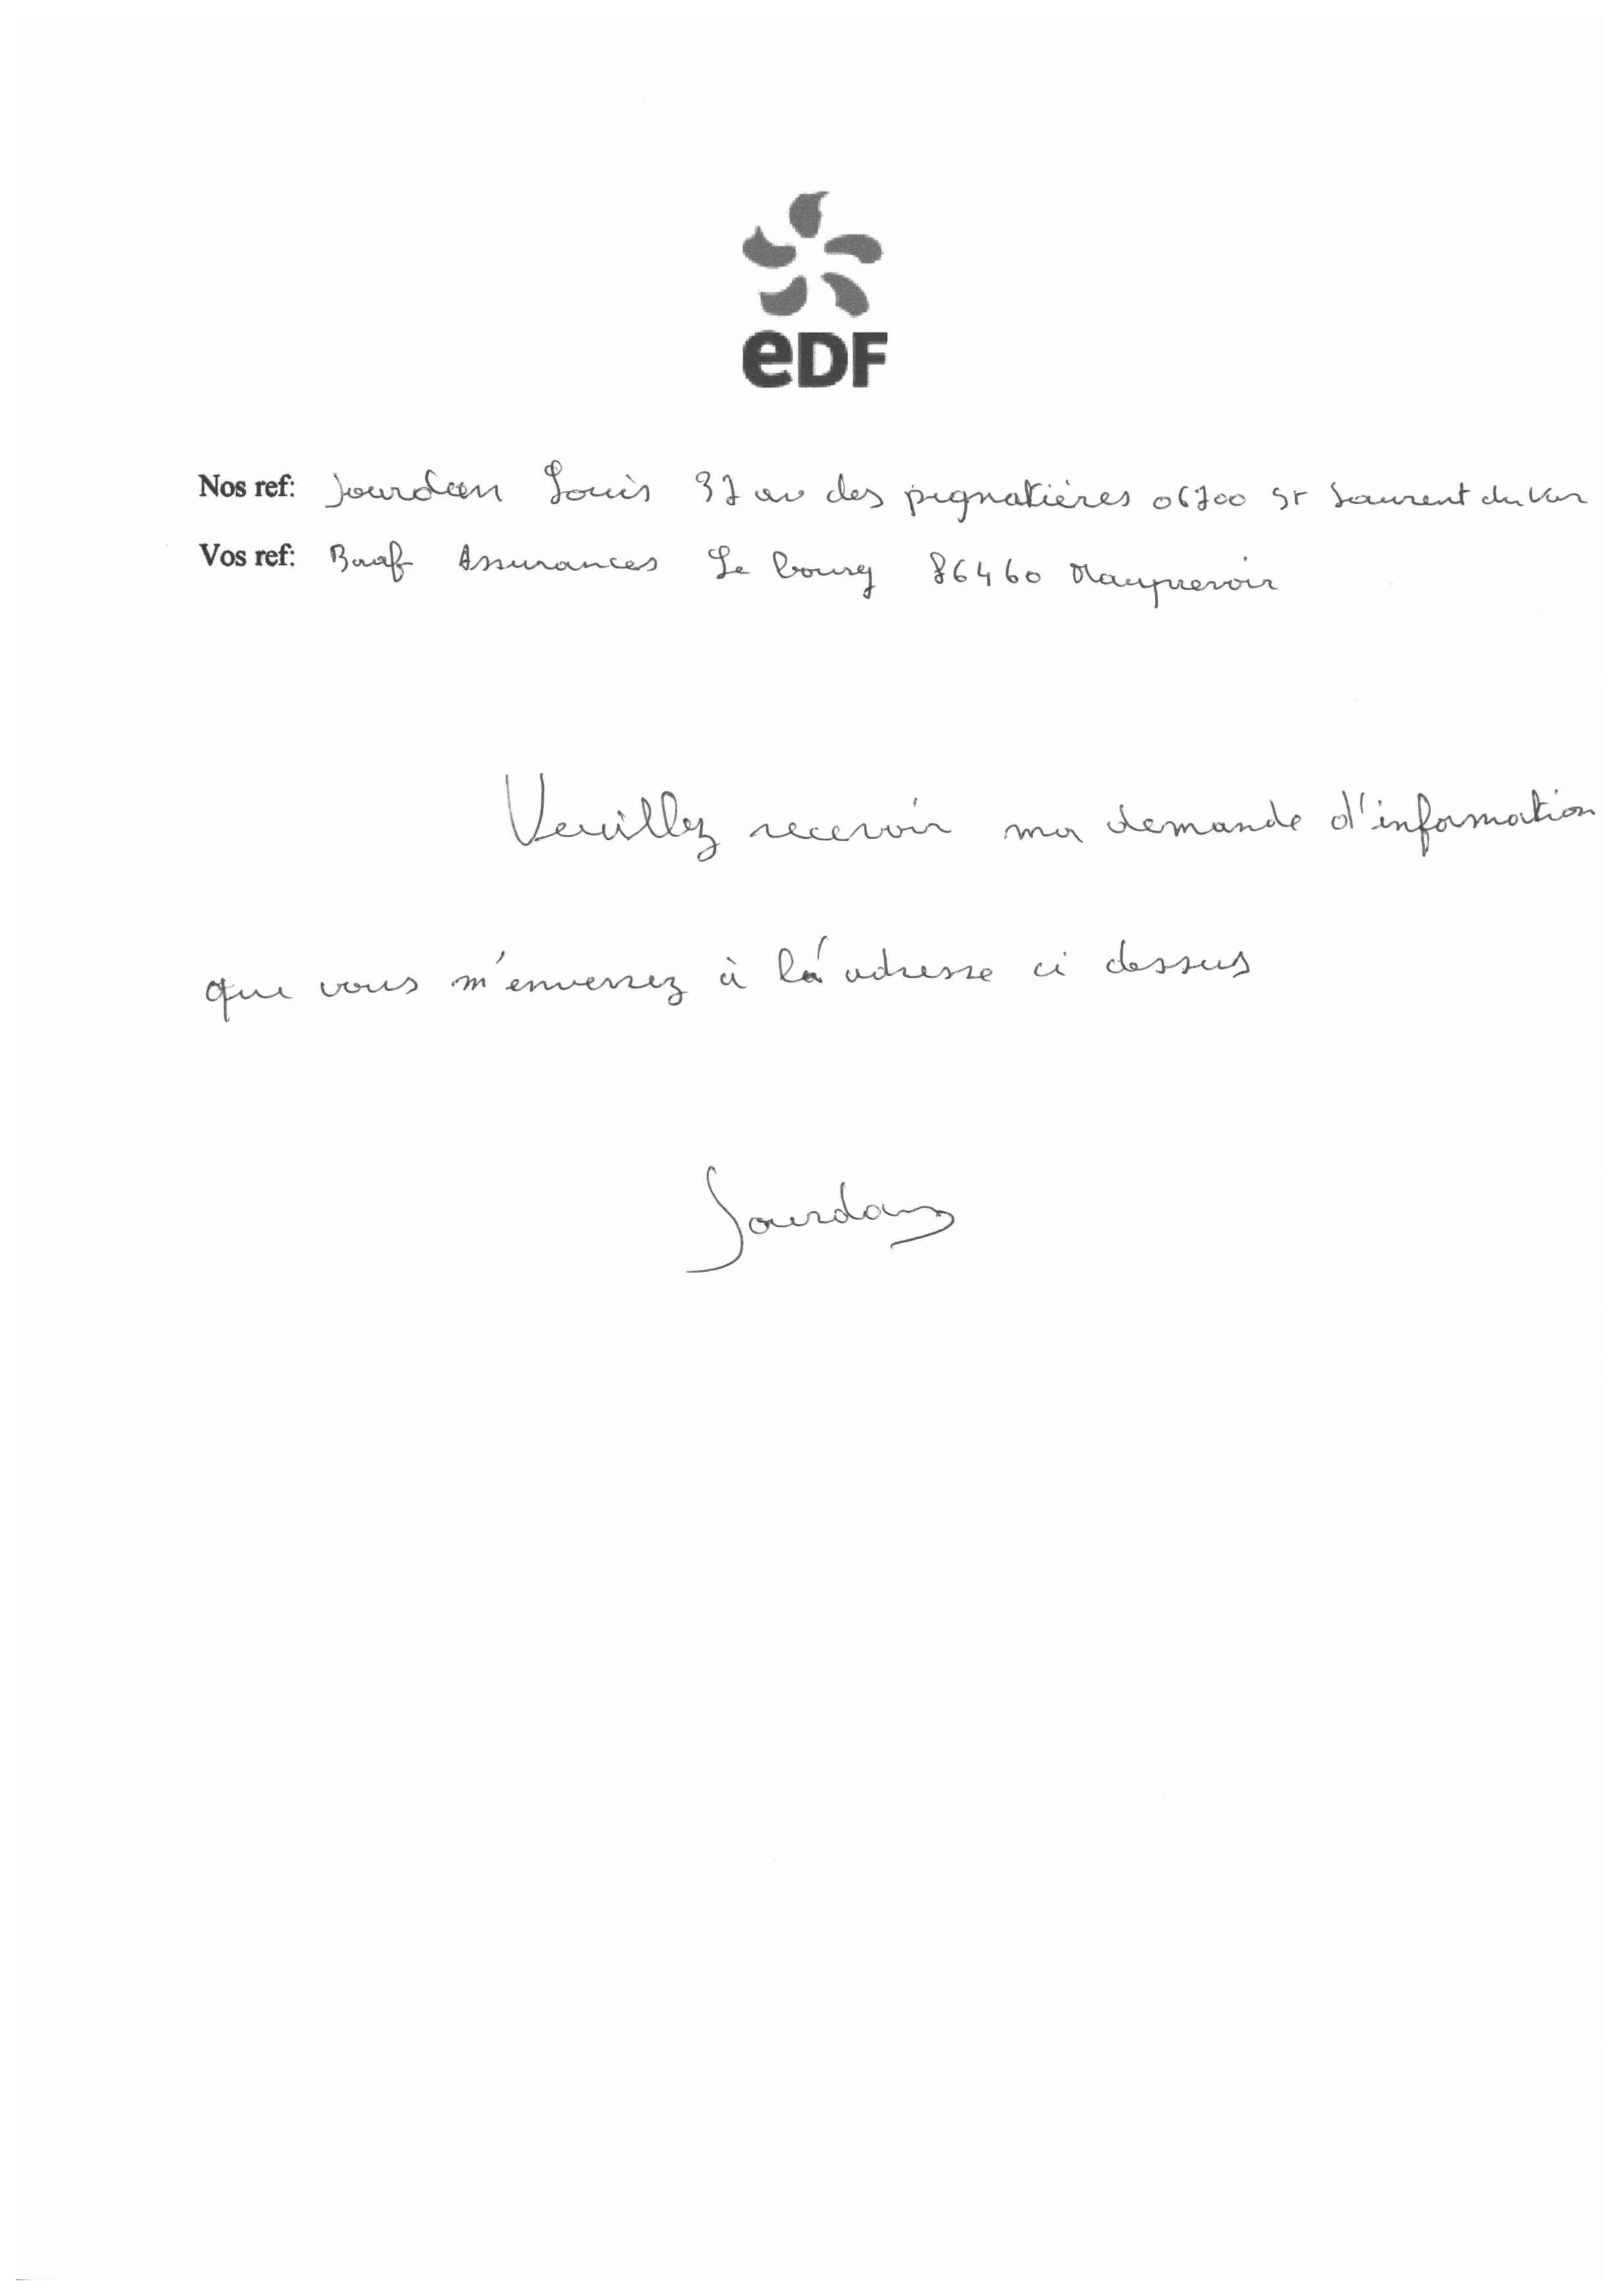 eDF
Nos ref: Jourdan Louis 37 av des pignatières 06700 St Laurent du Var
Vos ref: Baaf Assurances Le bourg 86460 Mauprevoir
Veuillez recevoir ma demande d'information
que vous m'enverrez à la' adresse ci dessus
Jourdan